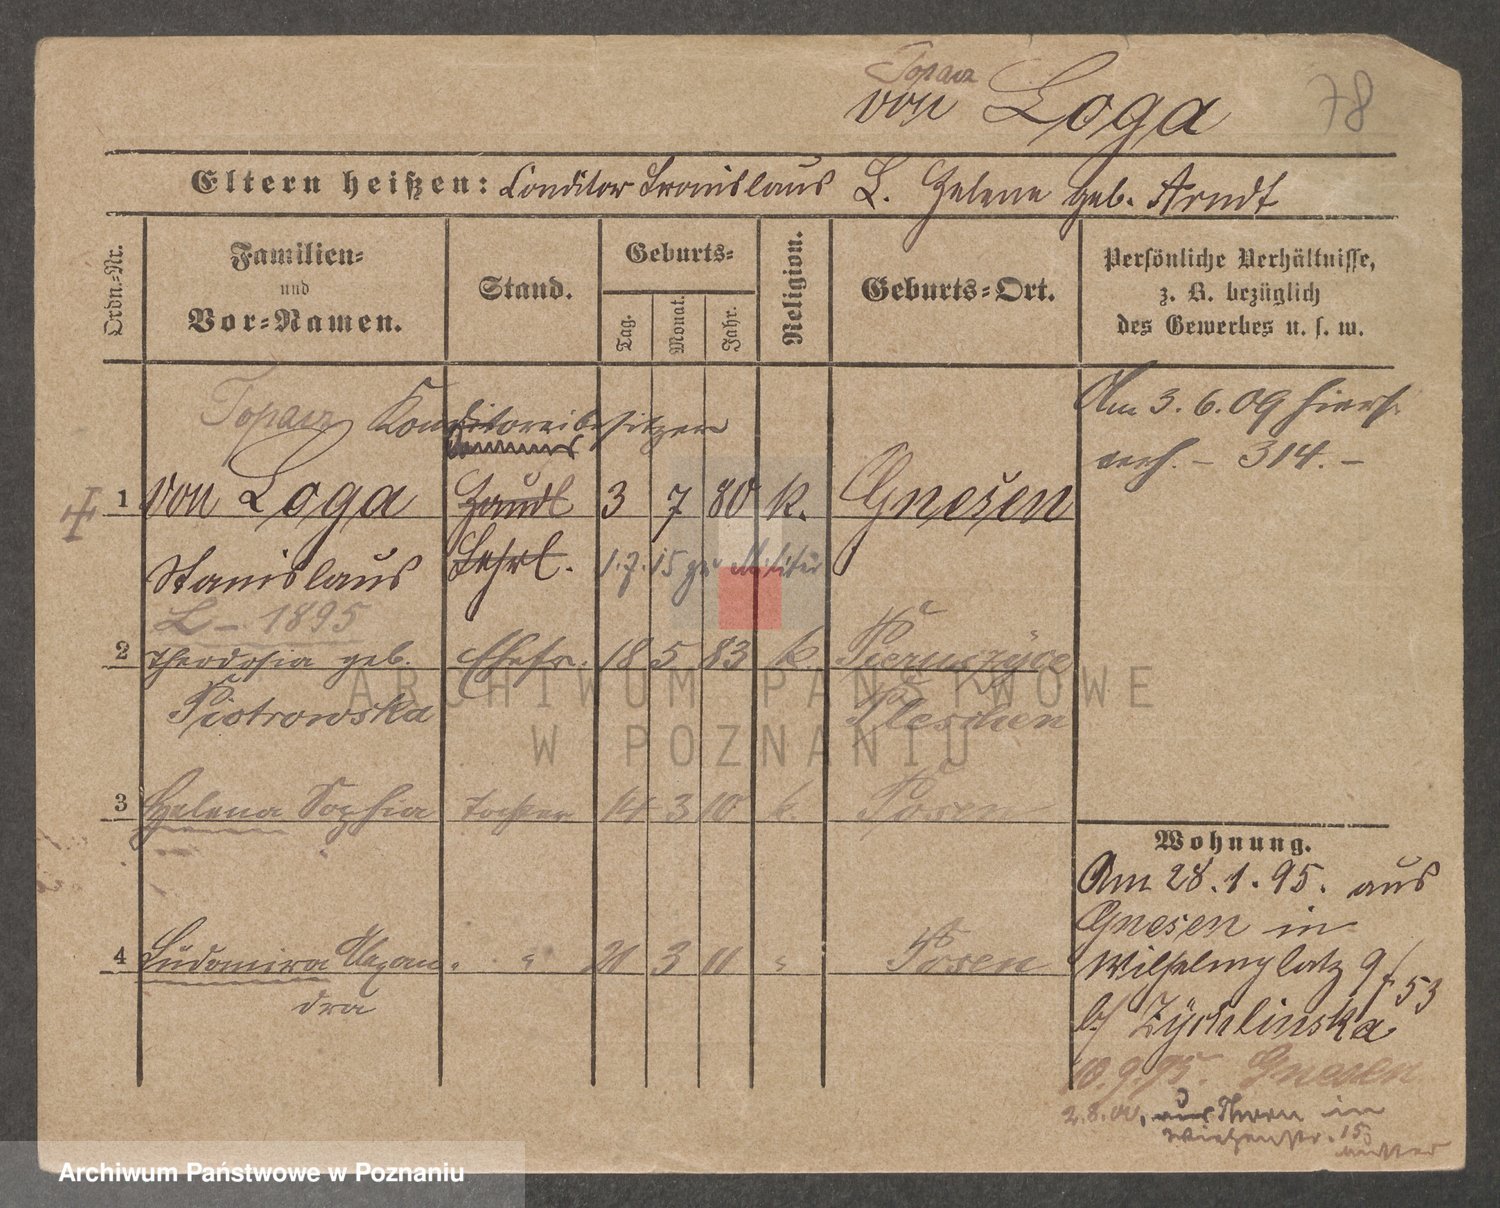 Topacz
von Loga
78
Eltern heißen: Conditor Bronislaus L. Helene geb. Arndt
Ordn.-Nr.
Familien-
und
Vor-Namen.
Stand.
Geburts-
Tag.
Monat.
Jahr.
Religion.
Geburts-Ort.
Persönliche Verhältnisse,
z. B. bezüglich
des Gewerbes u. s. w.
Topacz Konditoreibesitzer
Am 3.6.09 hiers.
verh. - 314. -
1 von Loga Handl 3 7 80 k. Gnesen
Stanislaus Lehrl. 1.7.15 zu Militär
L - 1895
2 Theodosia geb. Ehefr. 18 5 83 k. Pieruszyce
Piotrowska Pleschen
3 Helena Sophia Tochter 14 3 10 k. Posen
4 Ludomira Alexan- " " 21 3 11 " Posen
dra
Wohnung.
Am 28.1.95. aus
Gnesen in
Wilhelmplatz 9/53
b/ Zychlinska
10.9.95. Gnesen
2.8.00, aus Thorn in
Wiesenstr. 15
Mutter
ARCHIWUM PAŃSTWOWE
W POZNANIU
Archiwum Państwowe w Poznaniu